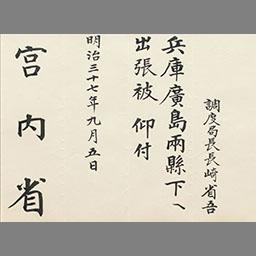 調度局長長崎省吾
兵庫廣島兩縣下ヘ
出張被 仰付
明治三十七年九月五日
宮内省